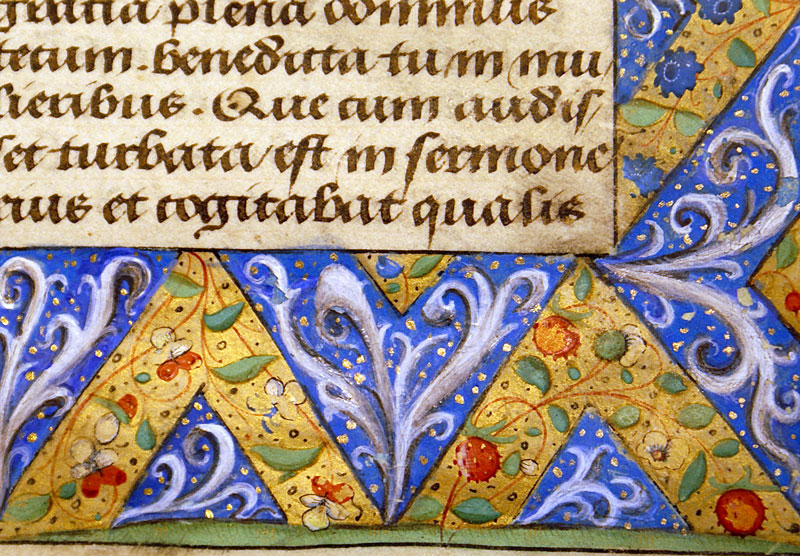 gratia plena dominus
tecum. benedicta tu in mu
lieribus. Que cum audis
set turbata est in sermone
eius et cogitabat qualis